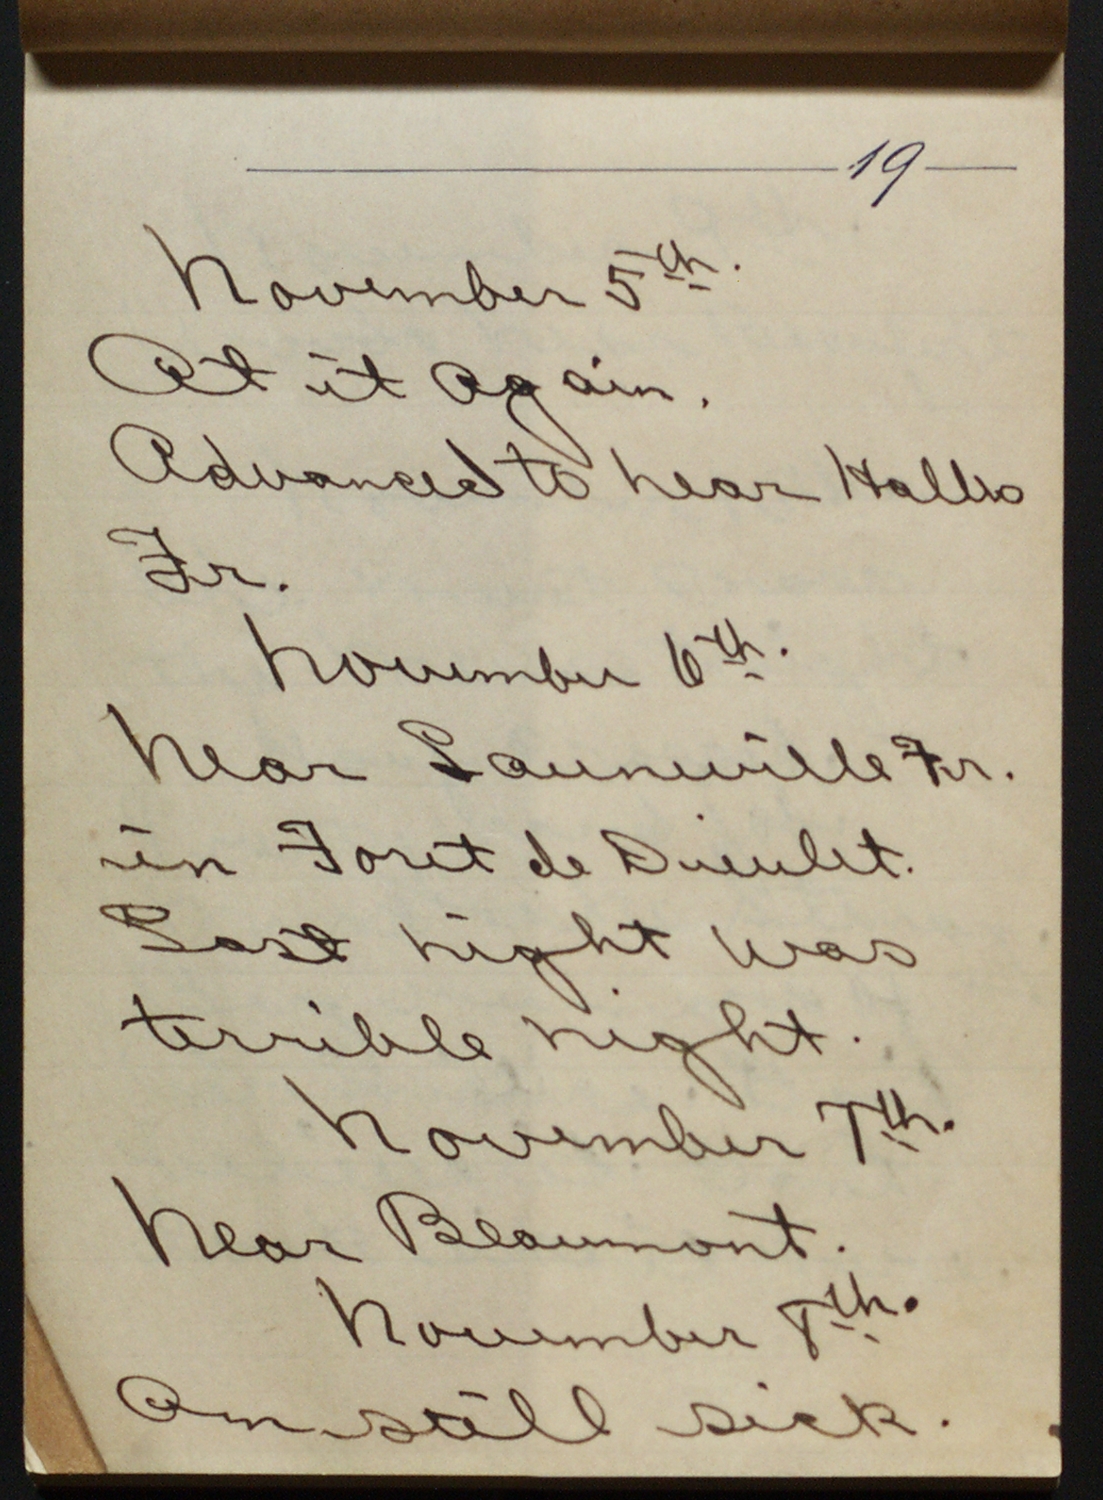 19
November 5th.
At it again.
Advanced to near Halles
Fr.
November 6th.
Near Launeville Fr.
in Foret de Dieulet.
Last night was
terrible night.
November 7th.
Near Beaumont.
November 8th.
Am still sick.